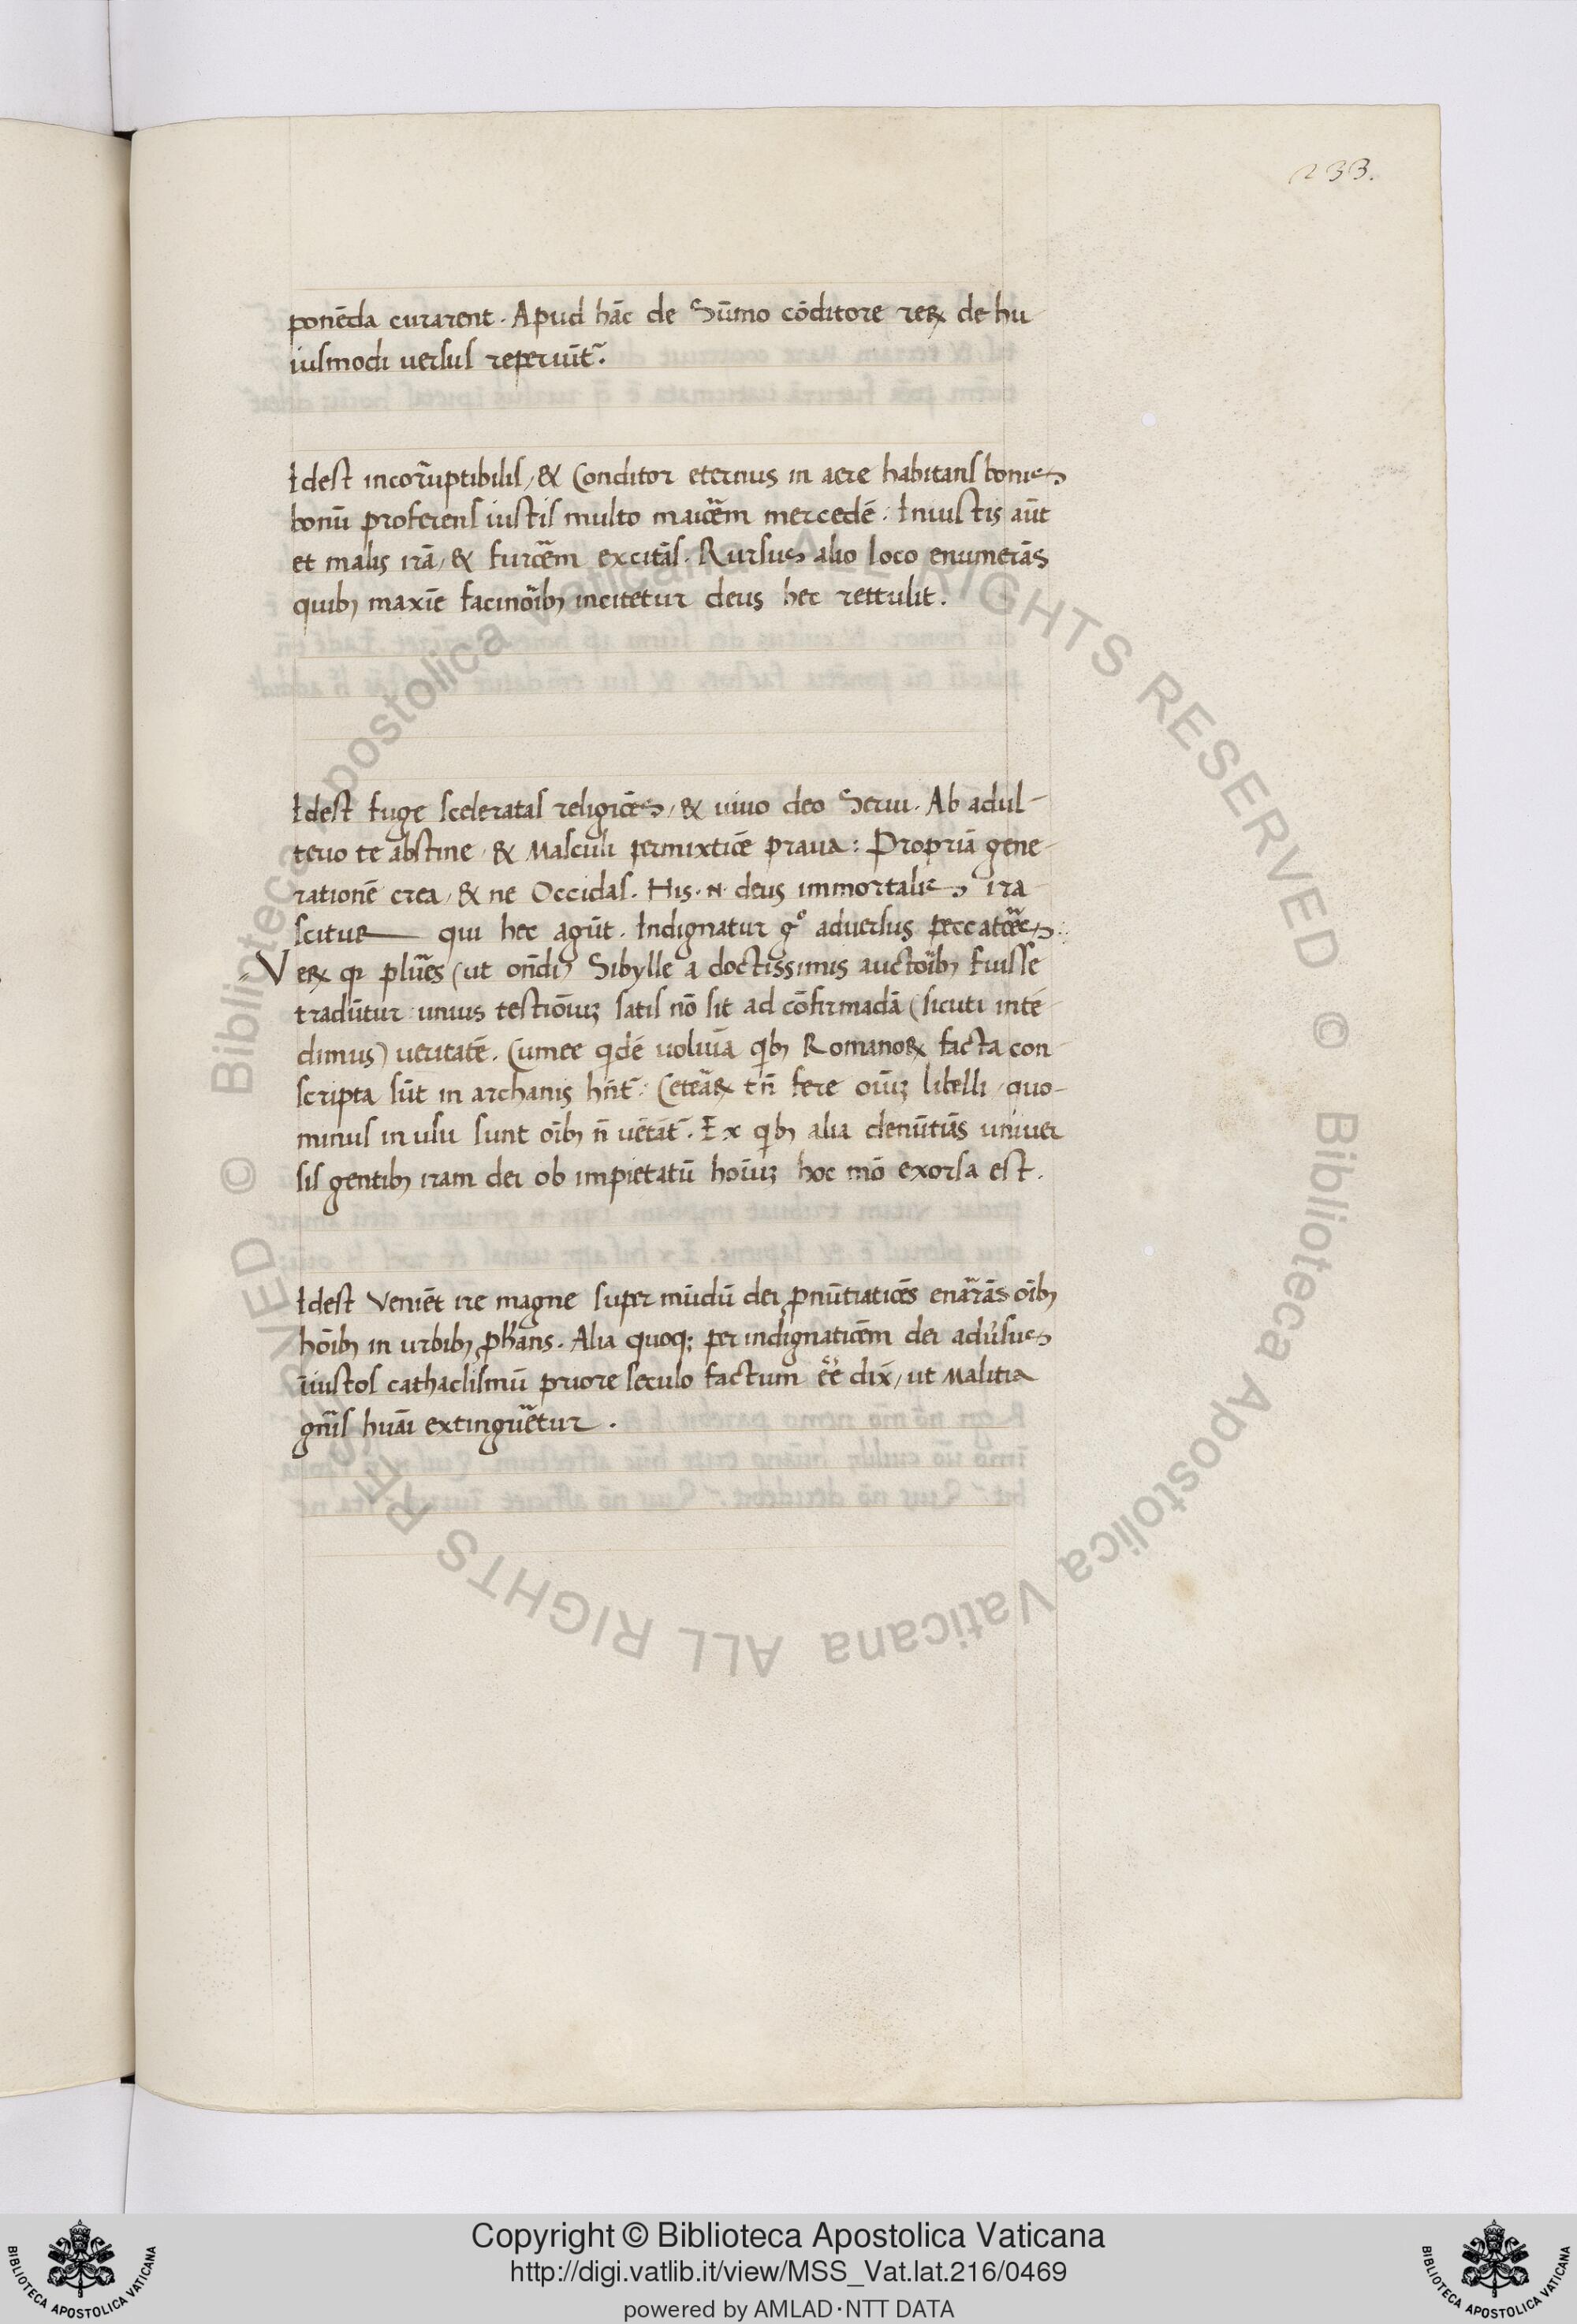 233.
ponēda curarent. Apud hāc de Sūmo cōditore reꝝ de hu
iusmodi versus reperiūt̃.
Idest incor̃uptibilis, & Conditor eternus in aere habitans bonis
bonū proferens iustis multo maior̃em mercedē. Iniustis aūt
et malis irā, & furor̃em excitās. Rursus alio loco enumerās
quibꝫ maxīe facinor̃ibꝫ incitetur deus hec rettulit.
Idest fuge sceleratas religiões, & vivo deo Servi. Ab adul-
terio te abstine & Masculi permixtiõe prava: Propriā gene-
rationē crea, & ne Occidas. His .n. deus immortalis ira
scitur qui hec agūt. Indignatur gͦ adversus peccator̃es
Veꝝ qꝛ plũes (ut oñdi) Sibylle a doctissimis auctor̃ibꝫ fuisse
tradūtur unius testiōiuꝫ satis nō sit ad cōfirmādā (sicuti intē-
dimus) veritatē. Cumee qͥdē voluīa qͥbꝫ Romanoꝝ facta con-
scripta sūt in archanis hñt̃. Ceter̃aꝝ tñ fere oīuꝫ libelli quo-
minus in usu sunt oībꝫ ñ vētāt̃. Ex qͥbꝫ alia denūtiās univer
sis gentibꝫ iram dei ob impietatū hoīuꝫ hoc mō exorsa est.
Idest Veniēt ire magne super mūdū dei ꝓnūtiatiões enar̃ās oībꝫ
hōibꝫ in urbibꝫ ꝓphans. Alia quoqꝫ per indignatiõem dei adv̓sus
īiustos cathaclismū priore seculo factum eē̃ dix̃, ut Malitia
gñis huāi extinguer̃etur.
© Biblioteca Apostolica Vaticana ALL RIGHTS RESERVED © Biblioteca Apostolica Vaticana ALL RIGHTS RESERVED
Copyright © Biblioteca Apostolica Vaticana
http://digi.vatlib.it/view/MSS_Vat.lat.216/0469
powered by AMLAD·NTT DATA
BIBLIOTECA APOSTOLICA VATICANA
BIBLIOTECA APOSTOLICA VATICANA